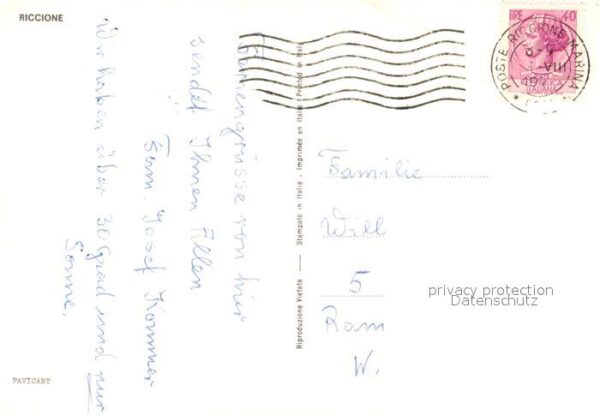 RICCIONE
Feriengrüsse von hier
sendet Ihnen Allen
Fam. Josef Kommer
Wir haben über 30 Grad und nur
Sonne.
Riproduzione Vietata — Stampato in Italia - Imprimée en Italie - Printed in Italy
LIRE 40
POSTE RICCIONE MARINA
VIII
Familie
Will
5
Ram
W.
privacy protection
Datenschutz
PAVICART